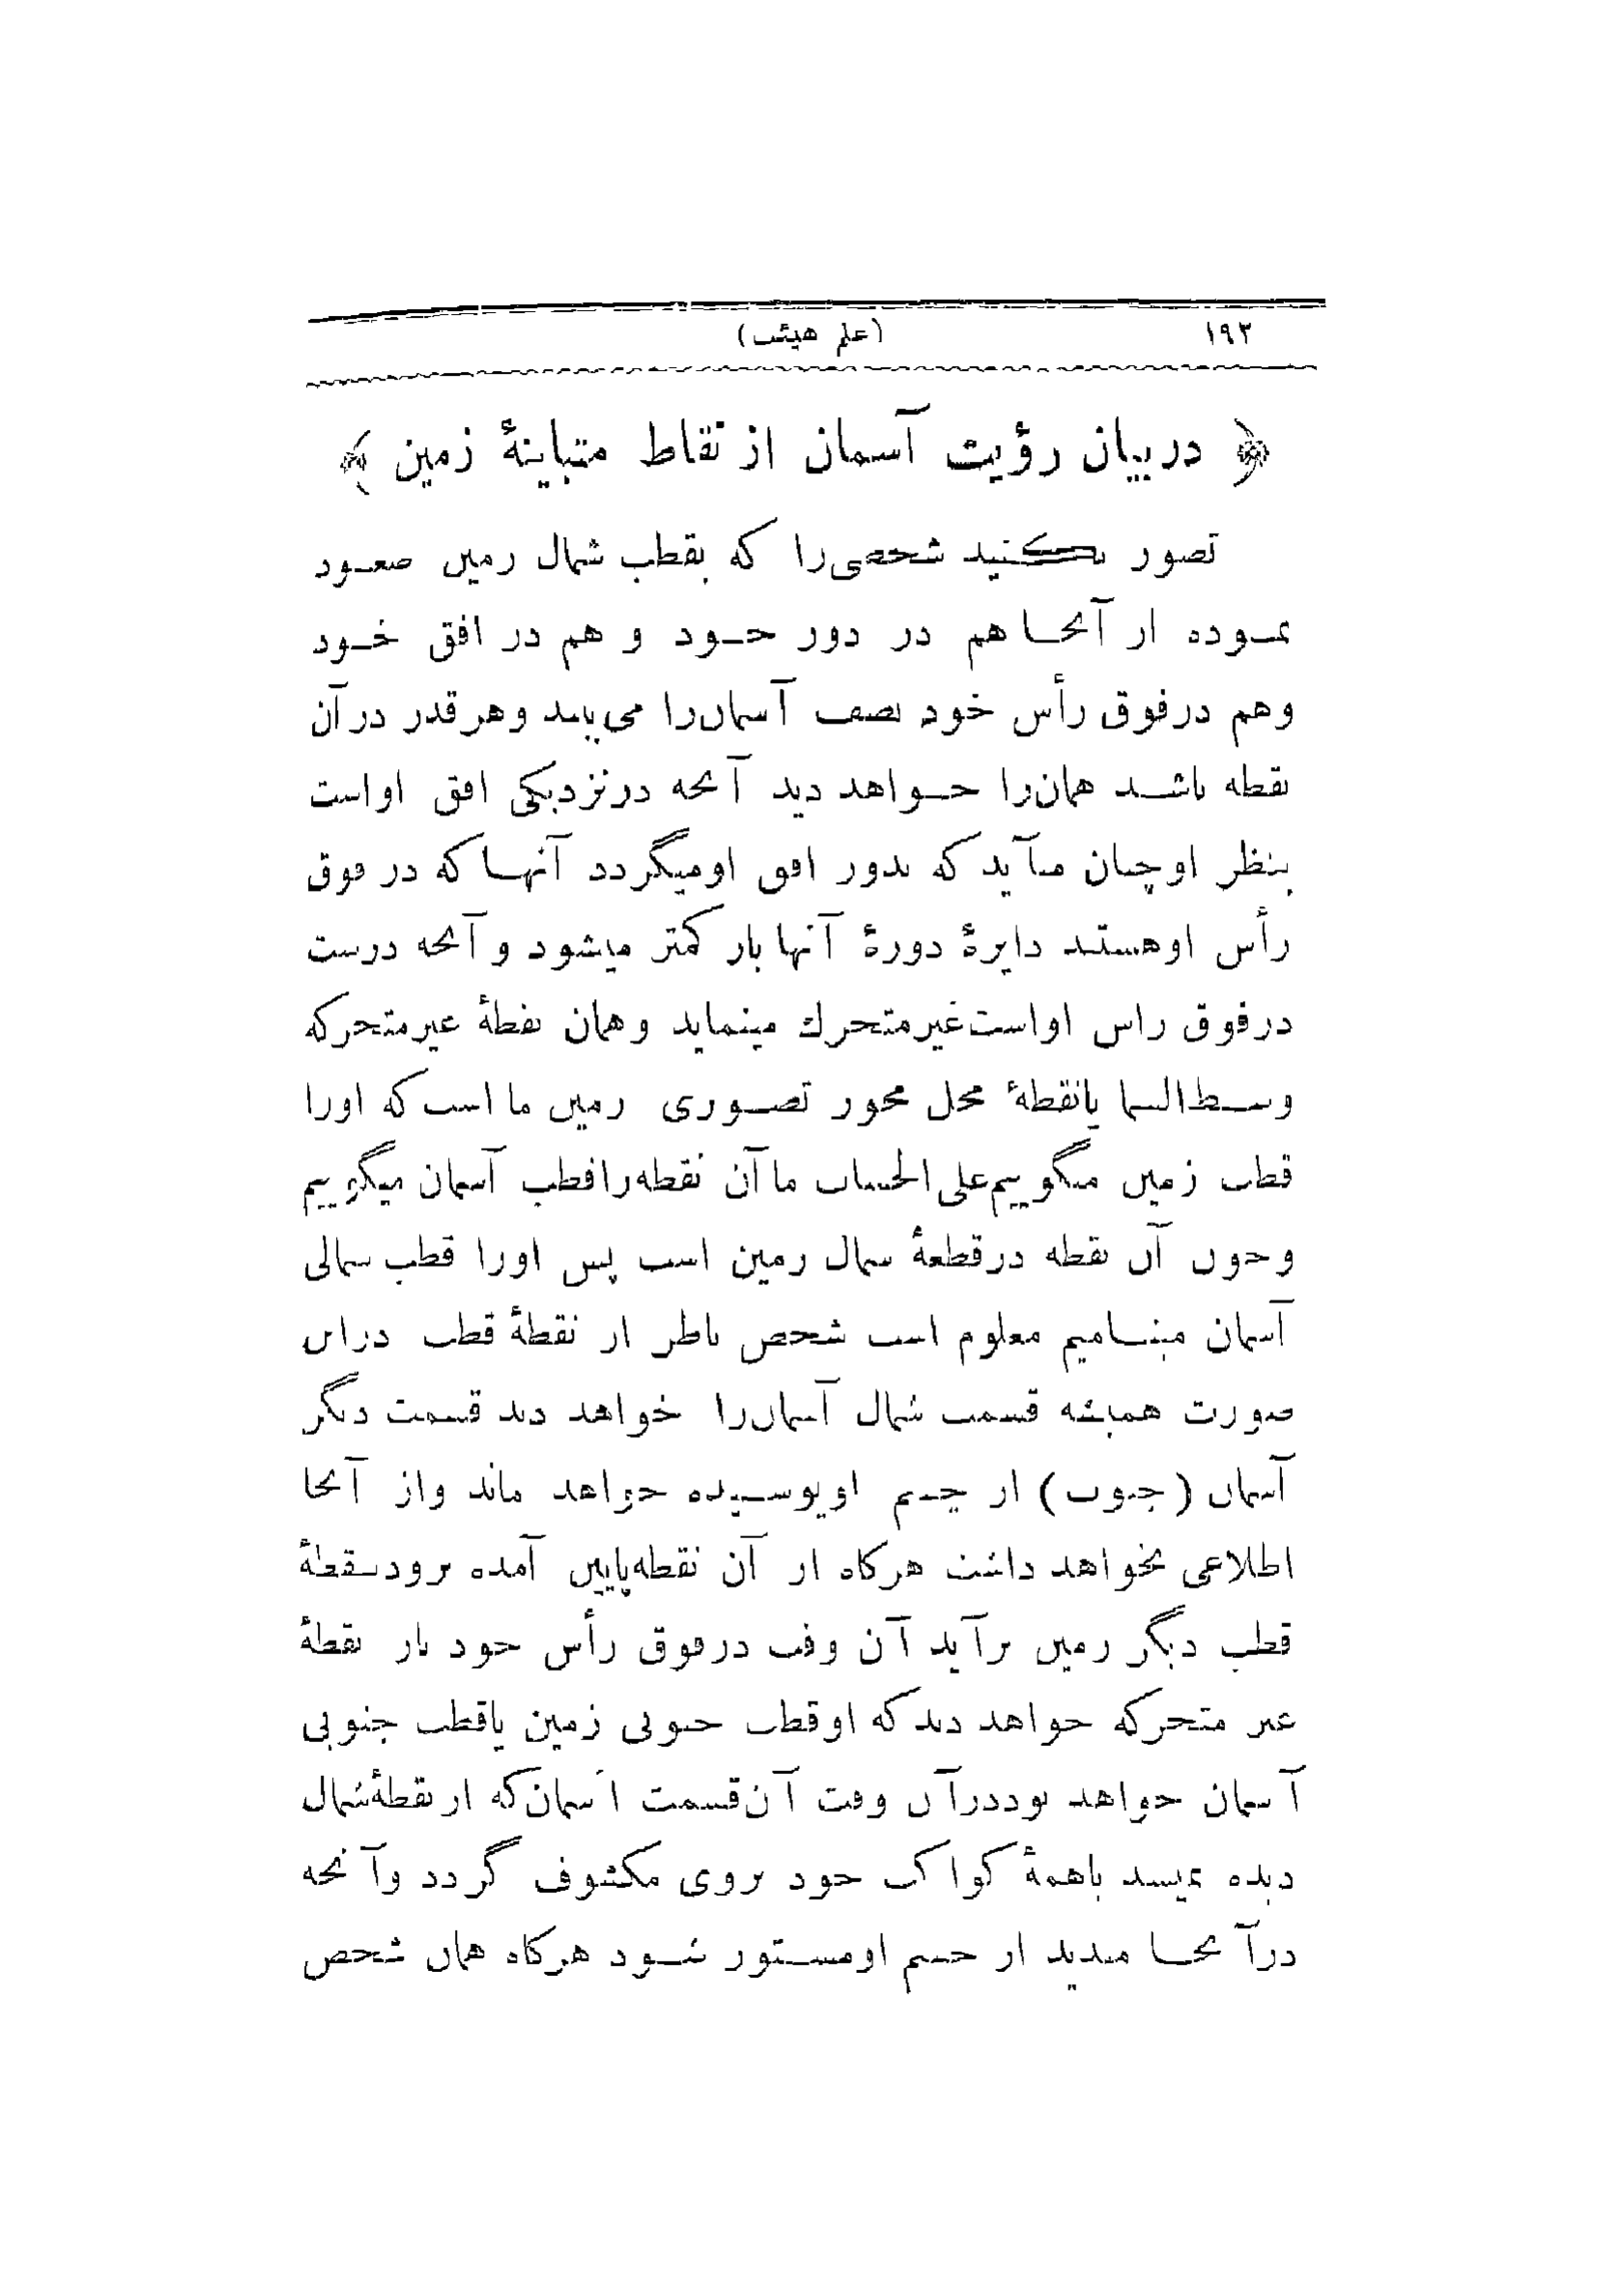 ۱۹۲ (علم هیئت)
﴿ در بیان رؤیت آسمان از نقاط متباینهٔ زمین ﴾
تصور بکنید شخصی‌را که بقطب شمال زمین صعود
نموده از آنجا هم در دور خود و هم در افق خود
وهم درفوق رأس خود نصف آسمان‌را می‌بیند وهرقدر درآن
نقطه باشد همان‌را خواهد دید آنچه درنزدیکی افق اواست
بنظر اوچنان میآید که بدور افق اومیگردد آنها که در فوق
رأس اوهستند دایرهٔ دورهٔ آنها بار کمتر میشود و آنچه درست
درفوق راس اواست غیرمتحرك مینماید وهمان نقطهٔ غیرمتحرکه
وسط‌السما یانقطهٔ محل محور تصوری زمین ما است که اورا
قطب زمین میگوییم علی‌الحساب ماآن نقطه‌راقطب آسمان میگوییم
وچون آن نقطه درقطعهٔ شمال زمین است پس اورا قطب شمالی
آسمان مینامیم معلوم است شخص ناظر از نقطهٔ قطب دراین
صورت همیشه قسمت شمال آسمان‌را خواهد دید قسمت دیگر
آسمان (جنوب) از چشم اوپوسیده خواهد ماند واز آنجا
اطلاعی نخواهد داشت هرکاه از آن نقطه‌پایین آمده برودبنقطهٔ
قطب دیگر زمین برآید آن وقت درفوق رأس خود باز نقطهٔ
غیر متحرکه خواهد دیدکه اوقطب جنوبی زمین یاقطب جنوبی
آسمان خواهد بوددرآن وقت آن‌قسمت آسمان‌که از نقطهٔ‌شمال
دیده نمیشد باهمهٔ کواکب خود بروی مکشوف گردد وآنچه
درآنجا میدید از چشم اومستور شود هرکاه همان شخص